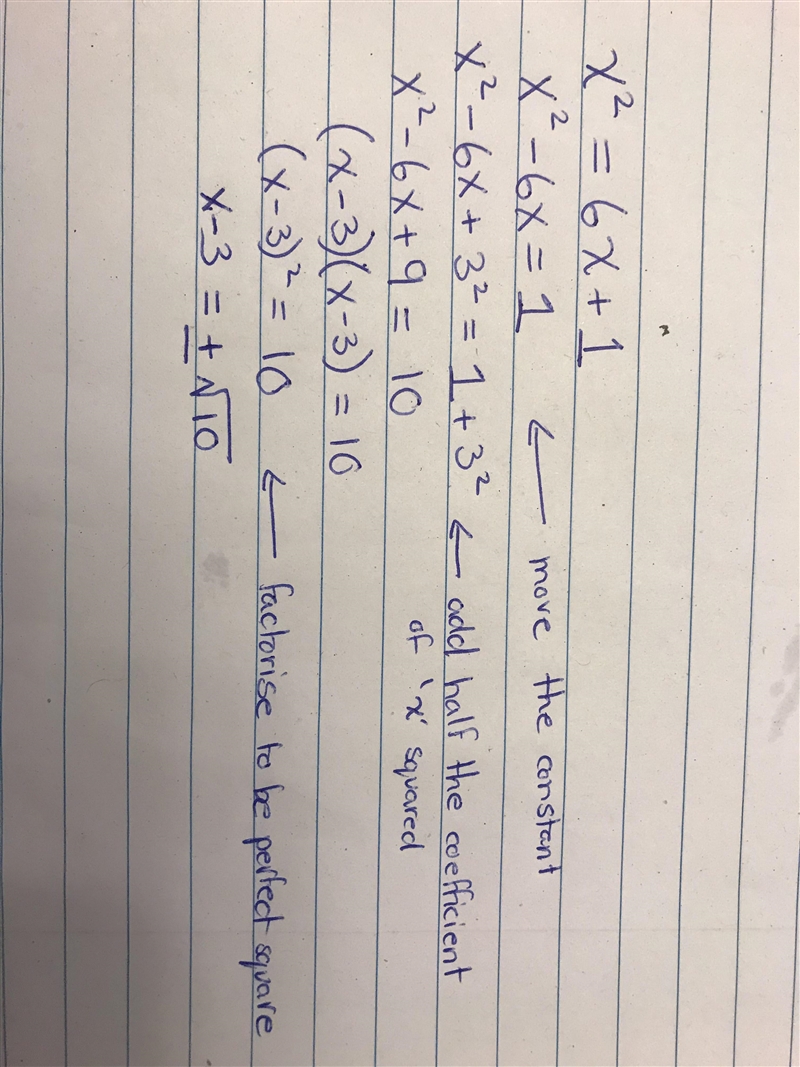 x² = 6x + 1
x² - 6x = 1 ← move the constant
x² - 6x + 3² = 1 + 3² ← add half the coefficient
of 'x' squared
x² - 6x + 9 = 10
(x-3)(x-3) = 10
(x-3)² = 10 ← factorise to be perfect square
x-3 = ±√10